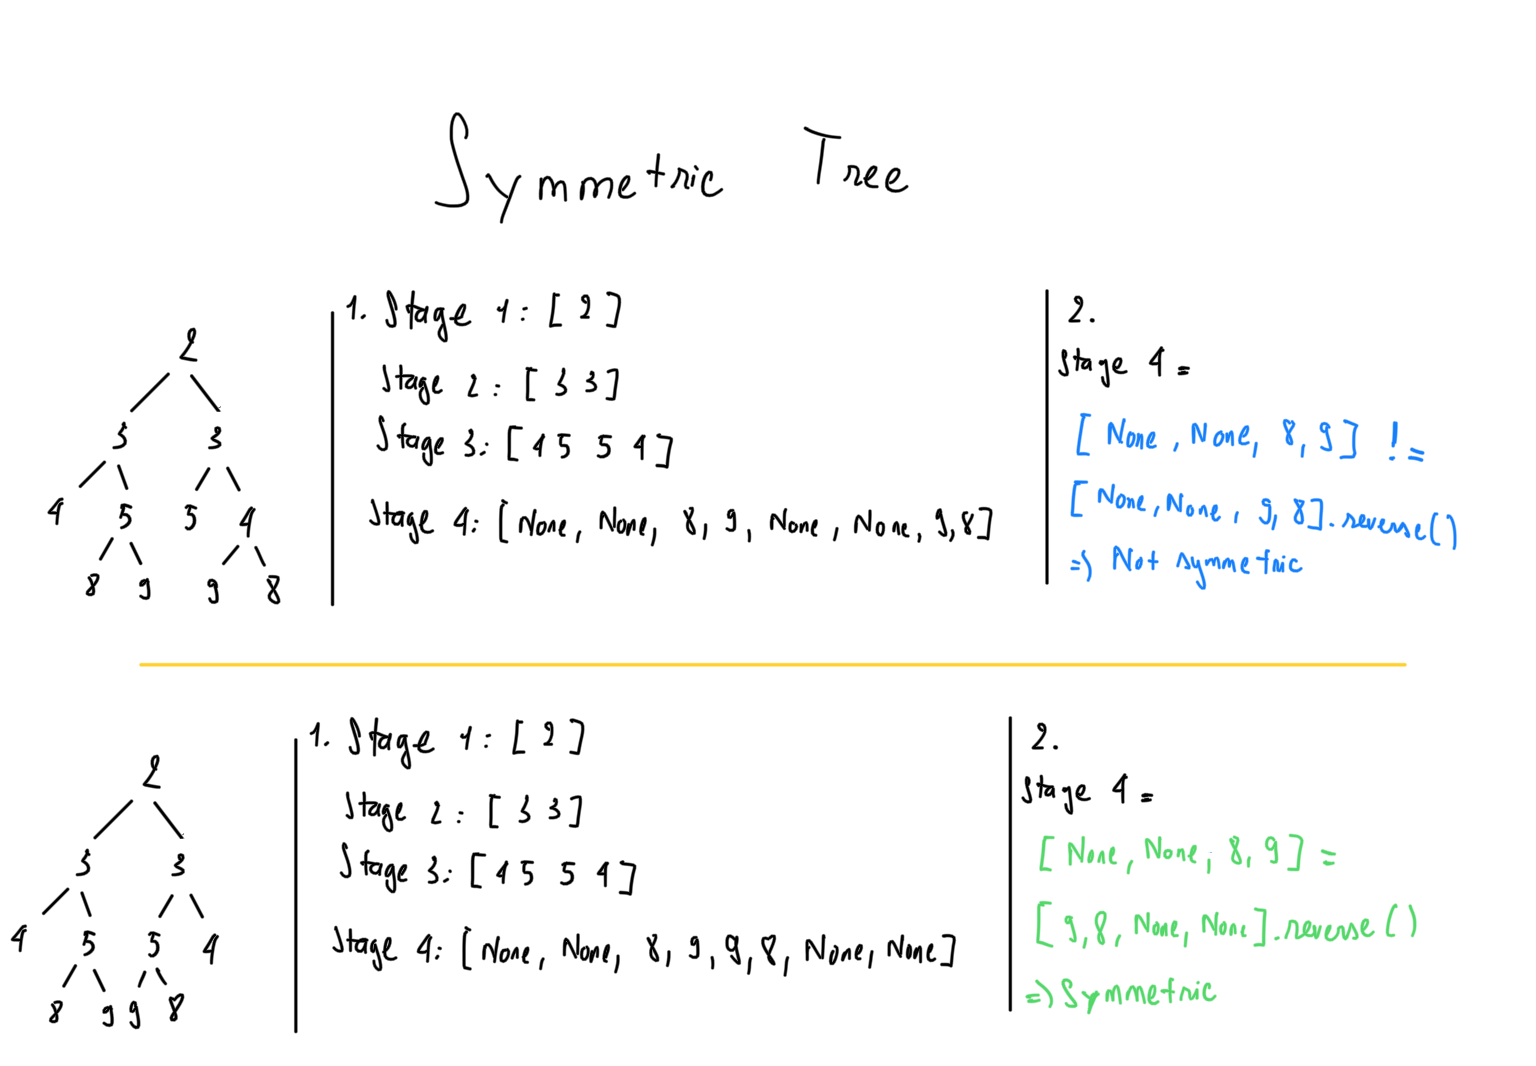 Symmetric Tree
2
3 3
4 5 5 4
8 9 9 8
1. Stage 1: [ 2 ]
Stage 2: [ 3 3 ]
Stage 3: [ 4 5 5 4 ]
Stage 4: [ None, None, 8, 9, None, None, 9, 8 ]
2.
Stage 4 =
[ None, None, 8, 9 ] !=
[ None, None, 9, 8 ].reverse()
=> Not symmetric
2
3 3
4 5 5 4
8 9 9 8
1. Stage 1: [ 2 ]
Stage 2: [ 3 3 ]
Stage 3: [ 4 5 5 4 ]
Stage 4: [ None, None, 8, 9, 9, 8, None, None ]
2.
Stage 4 =
[ None, None, 8, 9 ] =
[ 9, 8, None, None ].reverse()
=> Symmetric